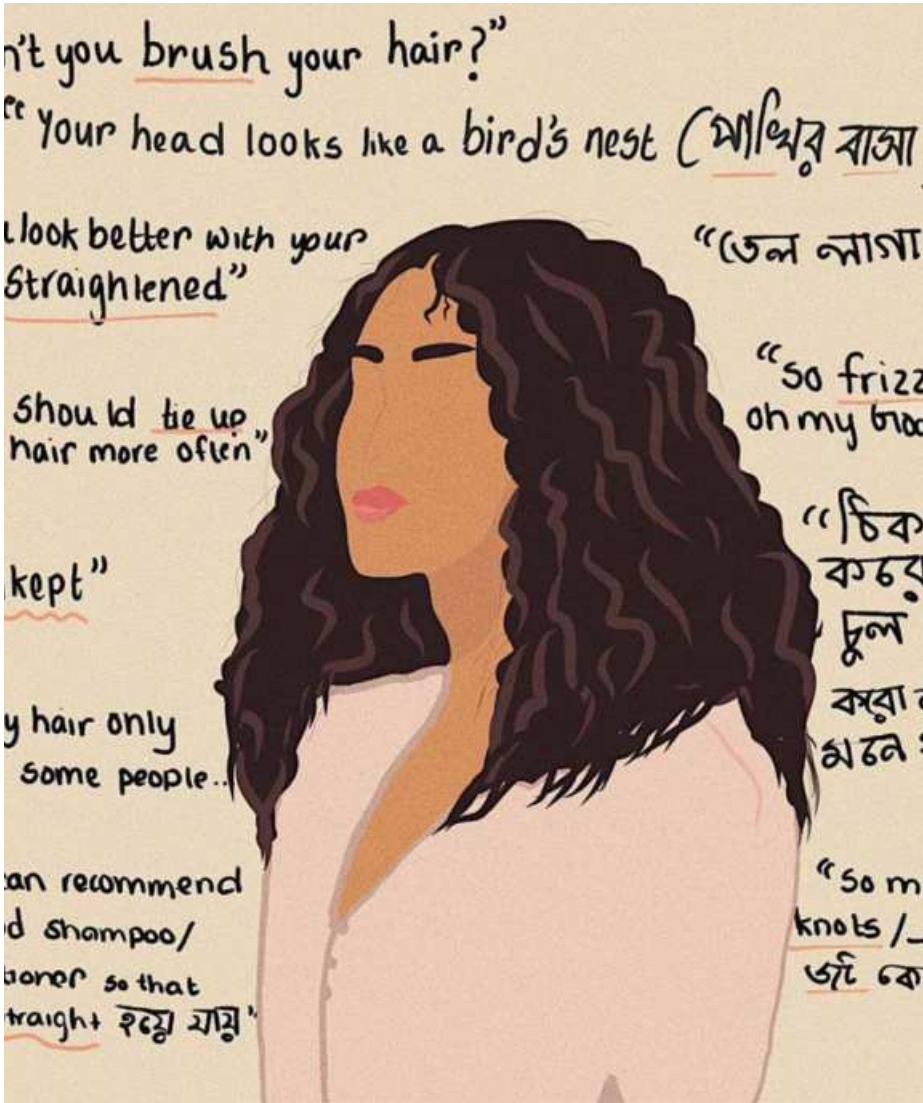 n't you brush your hair?"
"Your head looks like a bird's nest (পাখির বাসা
look better with your
Straightened"
"তেল লাগা
"So frizz
oh my God
should tie up
hair more often"
"ঠিক
করে
চুল
করা
মনে
kept"
y hair only
some people..
an recommend
d shampoo/
ioner so that
traight হয়ে যায়"
"So m
knots /
জট কে